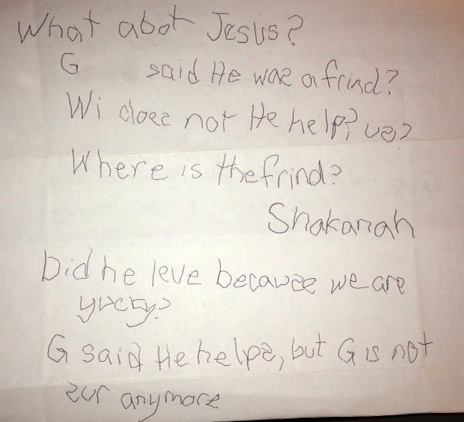 What abot Jesus?
G said He was a frind?
Wi does not He help? us?
Where is the frind?
Shakanah
Did he leve because we are
yucky?
G said He helps, but G is not
sur anymore